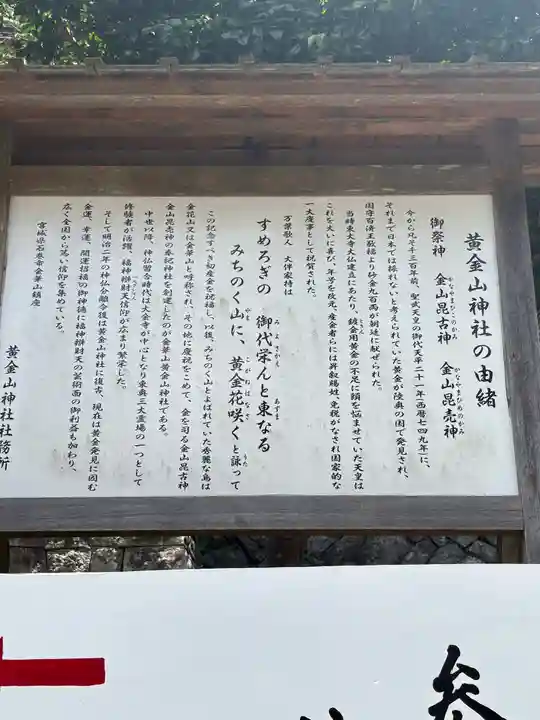 黄金山神社の由緒
御祭神　金山毘古神　金山毘売神
かなやまひこのかみ　かなやまひめのかみ
今から凡そ千三百年前、聖武天皇の御代天平二十一年（西暦七四九年）に、
それまで日本では採れないと考えられていた黄金が陸奥の国で発見され、
国守百済王敬福より砂金九百両が朝廷に献ぜられた。
当時東大寺大仏建立にあたり、鍍金用黄金の不足に頭を悩ませていた天皇は
これを大いに喜び、年号を改元、産金者らには昇叙賜姓、免税がなされ国家的な
一大慶事として祝賀された。
万葉歌人　大伴家持は
すめろぎの　御代栄んと東なる
みよさかえ　あずま
みちのく山に、黄金花咲くと詠って
やま　こがねはなさ　うた
この記念すべき産金を祝福し、以後、みちのく山とよばれていた秀麗な島は
金花山又は金華山と呼称され、その地に慶祝をこめて、金を司る金山毘古神
金山毘売神の奉祀神社を創建したのが金華山黄金山神社である。
中世以降、神仏習合時代は大金寺が中心となり東奥三大霊場の一つとして
修験者が活躍、福神辨財天信仰が広まり繁栄した。
そして明治二年の神仏分離令後は黄金山神社に復古、現在は黄金発見に因む
金運、幸運、開運招福の御神徳に福神辨財天の芸術面の御利益も加わり、
広く全国から篤い信仰を集めている。
宮城県石巻市金華山鎮座
黄金山神社社務所